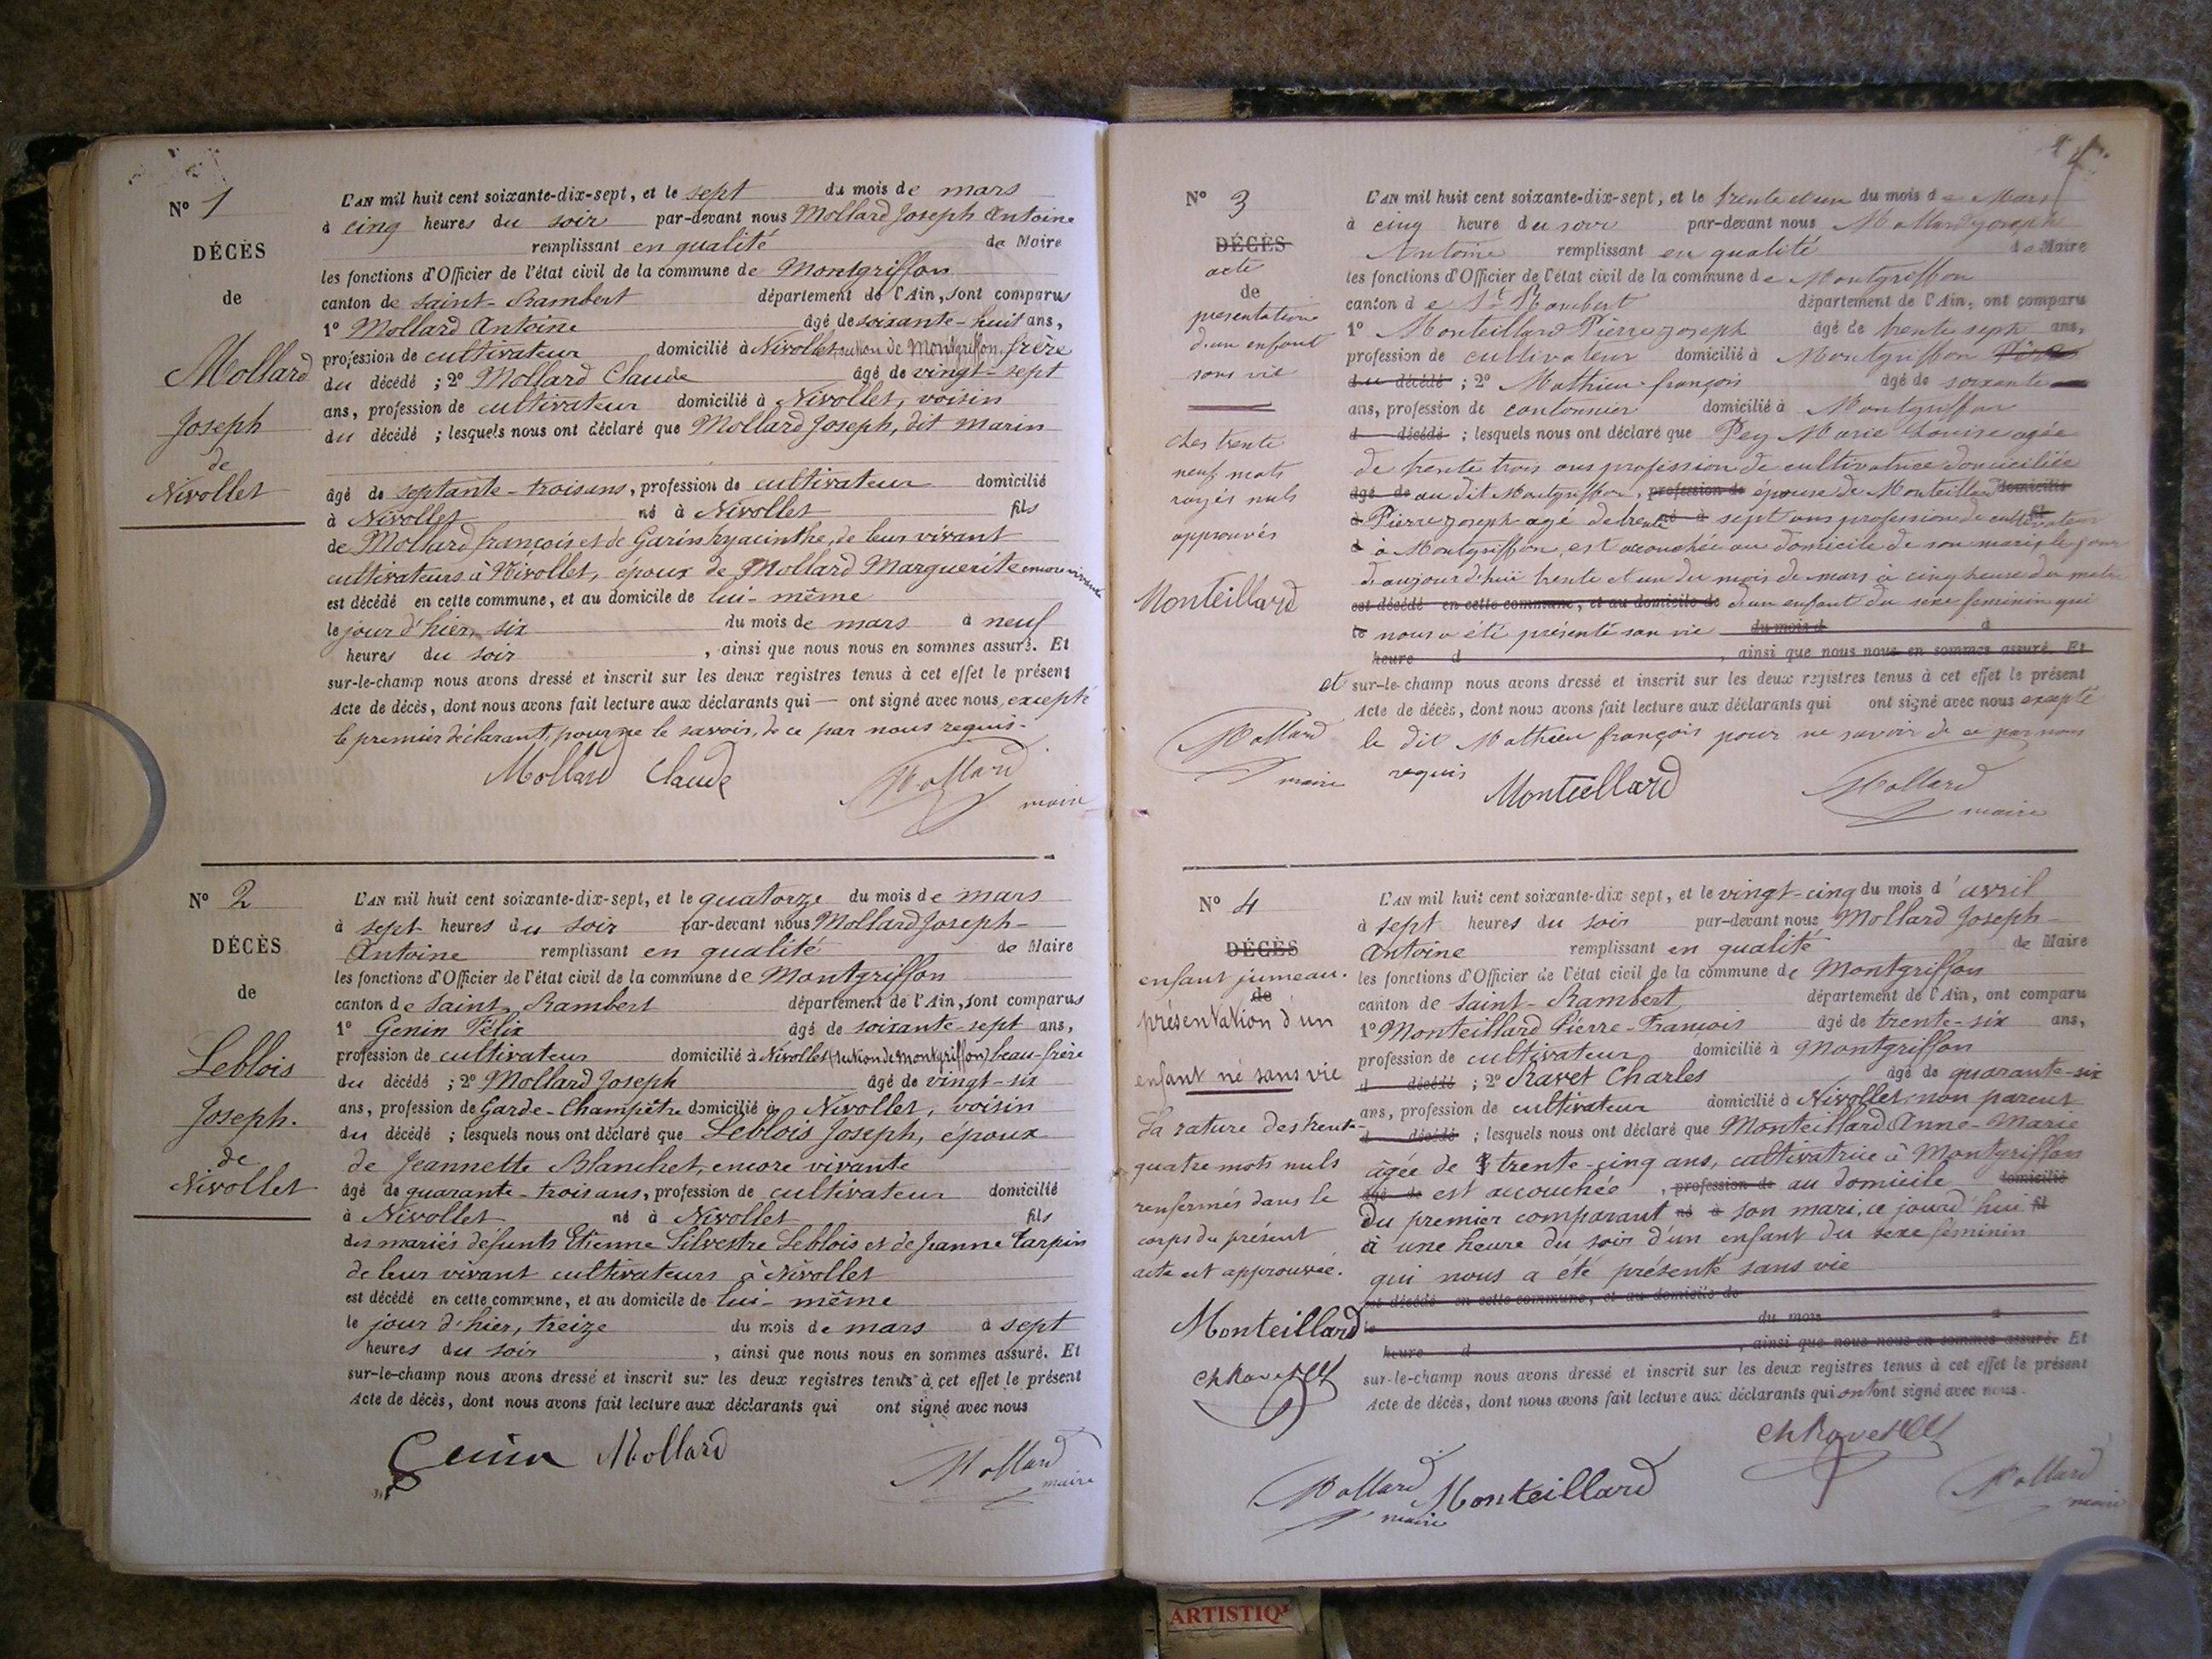 N° 1
DÉCÈS
de
Mollard
Joseph
de
Nivollet
L'AN mil huit cent soixante-dix-sept, et le sept du mois de mars
à cinq heures du soir par-devant nous Mollard Joseph Antoine
remplissant en qualité de Maire
les fonctions d'Officier de l'état civil de la commune de Montgriffon
canton de Saint-Rambert département de l'Ain, sont comparus
1° Mollard Antoine âgé de soixante-huit ans,
profession de cultivateur domicilié à Nivollet, section de Montgriffon, frère
du décédé ; 2° Mollard Claude âgé de vingt-sept
ans, profession de cultivateur domicilié à Nivollet, voisin
du décédé ; lesquels nous ont déclaré que Mollard Joseph, dit marin
âgé de septante-trois ans, profession de cultivateur domicilié
à Nivollet né à Nivollet fils
de Mollard françois et de Garin hyacinthe, de leur vivant
cultivateurs à Nivollet, époux de Mollard Marguerite encore vivante
est décédé en cette commune, et au domicile de lui-même
le jour d'hier, six du mois de mars à neuf
heures du soir, ainsi que nous nous en sommes assuré. Et
sur-le-champ nous avons dressé et inscrit sur les deux registres tenus à cet effet le présent
Acte de décès, dont nous avons fait lecture aux déclarants qui — ont signé avec nous, excepté
le premier déclarant, pour ne le savoir, de ce par nous requis.
Mollard Claude Mollard
maire
N° 2
DÉCÈS
de
Leblois
Joseph.
de
Nivollet
L'AN mil huit cent soixante-dix-sept, et le quatorze du mois de mars
à sept heures du soir par-devant nous Mollard Joseph-
Antoine remplissant en qualité de Maire
les fonctions d'Officier de l'état civil de la commune de Montgriffon
canton de Saint-Rambert département de l'Ain, sont comparus
1° Genin Félix âgé de soixante-sept ans,
profession de cultivateur domicilié à Nivollet (section de Montgriffon) beau-frère
du décédé ; 2° Mollard Joseph âgé de vingt-six
ans, profession de Garde-Champêtre domicilié à Nivollet, voisin
du décédé ; lesquels nous ont déclaré que Leblois Joseph, époux
de Jeannette Blanchet, encore vivante
âgé de quarante-trois ans, profession de cultivateur domicilié
à Nivollet né à Nivollet fils
des mariés défunts Etienne Silvestre Leblois et de Jeanne Tarpin
de leur vivant cultivateurs à Nivollet
est décédé en cette commune, et au domicile de lui-même
le jour d'hier, treize du mois de mars à sept
heures du soir, ainsi que nous nous en sommes assuré. Et
sur-le-champ nous avons dressé et inscrit sur les deux registres tenus à cet effet le présent
Acte de décès, dont nous avons fait lecture aux déclarants qui ont signé avec nous
Genin Mollard Mollard
maire
N° 3
DÉCÈS
acte
de
presentation
d'un enfant
sans vie
trente
neuf mots
rayés nuls
approuvés
Monteillard
Mollard
maire
L'AN mil huit cent soixante-dix-sept, et le trente et un du mois de Mars
à cinq heure du soir par-devant nous Mollard joseph
Antoine remplissant en qualité de Maire
les fonctions d'Officier de l'état civil de la commune de Montgriffon
canton de St Rambert département de l'Ain, ont comparu
1° Monteillard Pierre joseph âgé de trente sept ans,
profession de cultivateur domicilié à Montgriffon
du décédé ; 2° Mathieu françois âgé de soixante
ans, profession de cantonnier domicilié à Montgriffon
d décédé ; lesquels nous ont déclaré que Pey Marie Louise agée
de trente trois ans profession de cultivatrice domiciliée
âgé de au dit Montgriffon, profession de épouse de Monteillard domicilié
à Pierre joseph agé de trente né à sept ans profession de cultivateur fil
d à Montgriffon, est accouchée au domicile de son mari, le jour
d'aujourd'hui trente et un du mois de mars à cinq heure du matin
est décédé en cette commune, et au domicile de d'un enfant du sexe feminin qui
le nous a été présenté san vie du mois d à
heure d , ainsi que nous nous en sommes assuré. Et
et sur-le-champ nous avons dressé et inscrit sur les deux registres tenus à cet effet le présent
Acte de décès, dont nous avons fait lecture aux déclarants qui ont signé avec nous excepté
le dit Mathieu françois pour ne savoir de ce par nous
requis
Monteillard Mollard
maire
N° 4
DÉCÈS
enfant jumeau.
de
présentation d'un
enfant né sans vie
La rature des trente-
quatre mots nuls
renfermés dans le
corps du présent
acte est approuvée.
Monteillard
Ch Ravet
L'AN mil huit cent soixante-dix sept, et le vingt-cinq du mois d'avril
à sept heures du soir par-devant nous Mollard Joseph-
Antoine remplissant en qualité de Maire
les fonctions d'Officier de l'état civil de la commune de Montgriffon
canton de Saint-Rambert département de l'Ain, ont comparu
1° Monteillard Pierre-François âgé de trente-six ans,
profession de cultivateur domicilié à Montgriffon
d décédé ; 2° Ravet Charles âgé de quarante-six
ans, profession de cultivateur domicilié à Nivollet, non parent
d décédé ; lesquels nous ont déclaré que Monteillard Anne-Marie
âgée de trente-cinq ans, cultivatrice à Montgriffon
âgé de est accouchée, profession de au domicile domicilié
du premier comparant né à son mari, ce jourd'hui fil
à une heure du soir d'un enfant du sexe féminin
qui nous a été présenté sans vie
est décédé en cette commune, et au domicile de
le du mois à
heure d , ainsi que nous nous en sommes assuré. Et
sur-le-champ nous avons dressé et inscrit sur les deux registres tenus à cet effet le présent
Acte de décès, dont nous avons fait lecture aux déclarants qui ont ont signé avec nous.
Ch Ravet
Mollard Monteillard Mollard
maire maire
ARTISTIQ